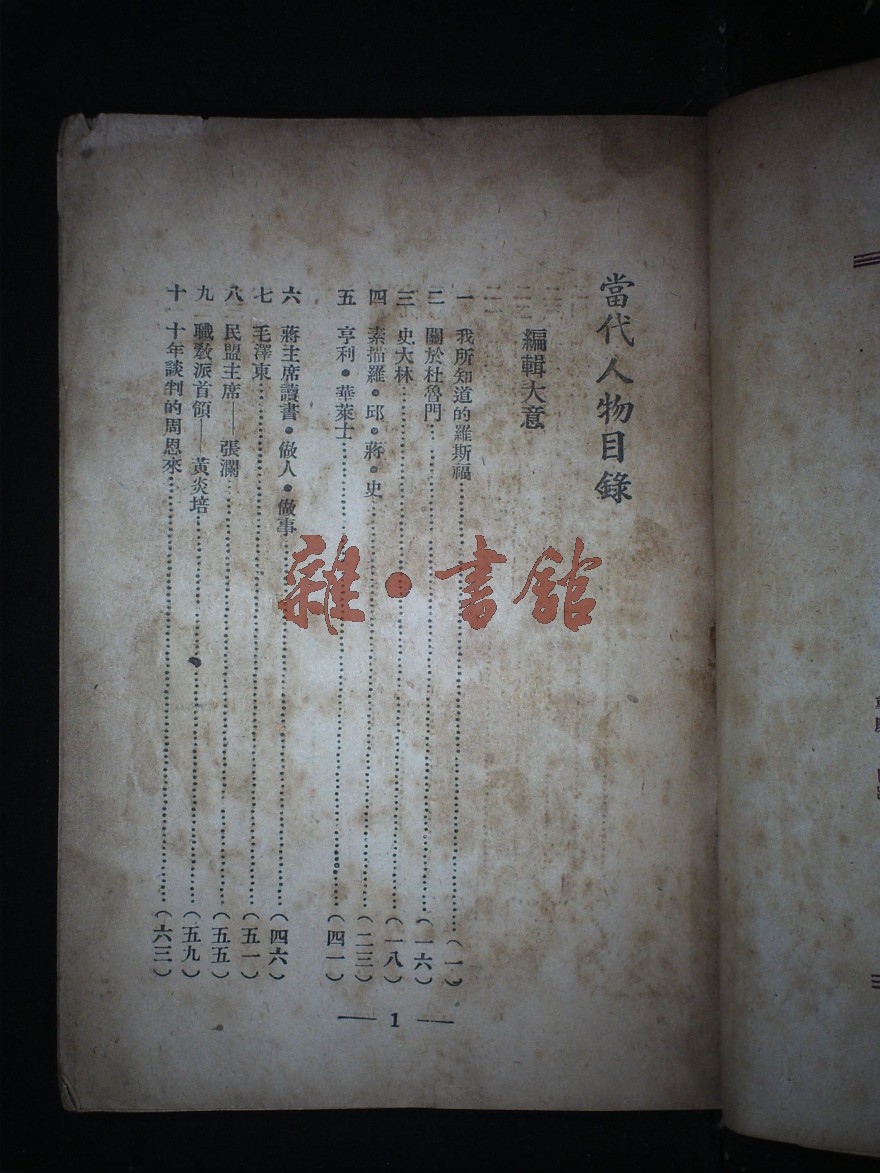 當代人物目錄
編輯大意
一 我所知道的羅斯福……(一)
二 關於杜魯門……(一六)
三 史大林……(一八)
四 素描羅·邱·蔣·史……(二三)
五 亨利·華萊士……(四一)
六 蔣主席讀書·做人·做事……(四六)
七 毛澤東……(五一)
八 民盟主席——張瀾……(五五)
九 職敎派首領——黃炎培……(五九)
十 十年談判的周恩來……(六三)
— 1 —
雜·書館